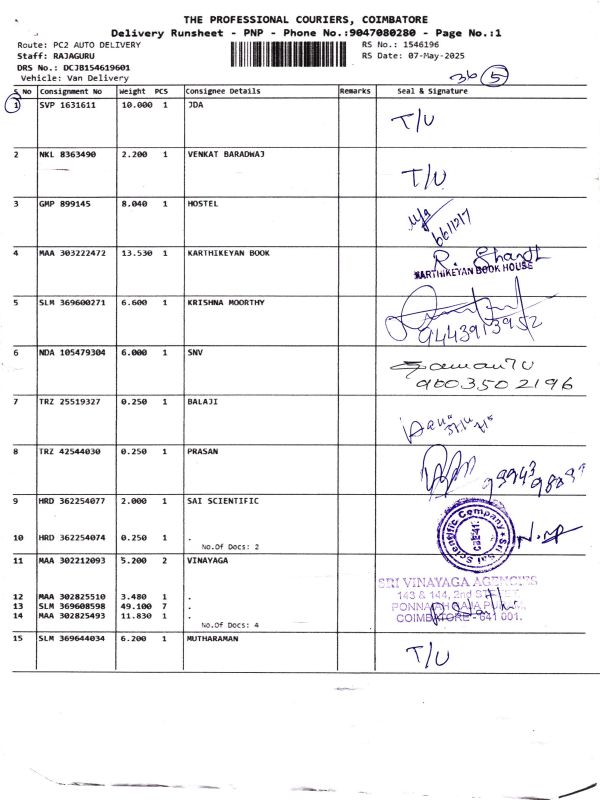 THE PROFESSIONAL COURIERS, COIMBATORE
Delivery Runsheet - PNP - Phone No.:9047080280 - Page No.:1
Route: PC2 AUTO DELIVERY
RS No.: 1546196
Staff: RAJAGURU
RS Date: 07-May-2025
DRS No.: DCJB154619601
Vehicle: Van Delivery
36 5
S No Consignment No Weight PCS Consignee Details Remarks Seal & Signature
1 SVP 1631611 10.000 1 JDA
T/U
2 NKL 8363490 2.200 1 VENKAT BARADWAJ
T/U
3 GMP 899145 8.040 1 HOSTEL
4 MAA 303222472 13.530 1 KARTHIKEYAN BOOK
R. Shanthi
KARTHIKEYAN BOOK HOUSE
5 SLM 369600271 6.600 1 KRISHNA MOORTHY
9443913952
6 NDA 105479304 6.000 1 SNV
9003502196
7 TRZ 25519327 0.250 1 BALAJI
8 TRZ 42544030 0.250 1 PRASAN
9 HRD 362254077 2.000 1 SAI SCIENTIFIC
Sri Sai Scientific Company
CBE-41.
10 HRD 362254074 0.250 1 .
No.Of Docs: 2
11 MAA 302212093 5.200 2 VINAYAGA
SRI VINAYAGA AGENCIES
12 MAA 302825510 3.480 1 .
143 & 144, 2nd STREET,
13 SLM 369608598 49.100 7 .
14 MAA 302825493 11.830 1 .
COIMBATORE - 641 001.
No.Of Docs: 4
15 SLM 369644034 6.200 1 MUTHARAMAN
T/U